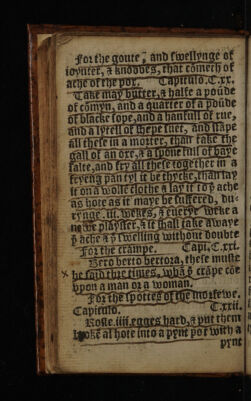 For the goute, and swellynge of
ioyntes, & knoddes, that cometh of
ache of the pox. Capitulo .C.xx.
Take may butter, & halfe a poūde
of comyn, and a quarter of a poūde
of blacke sope, and a hanfull of rue,
and a lytell of shepe suet, and stāpe
all these in a morter, than take the
gall of an oxe, & a sponefull of baye
salte, and fry all these together in a
fryeng pan tyl it be thycke, than lay
it on a wolle clothe & lay it to þ ache
as hote as it maye be suffered, du-
rynge .iii. wekes, & euerye weke a
newe playster, & it shall take awaye
þ ache & þ swelling without doubte
For the crampe. Capi.C.xxi.
Vero berto bertora, these muste
he said thre times, whā þ crāpe cōe
vpon a man or a woman.
For the spottes of the morfewe.
Capitulo. C.xxii.
Roste .iiii. egges hard, & put them
hoke al hote into a pynt pot with a
pynt